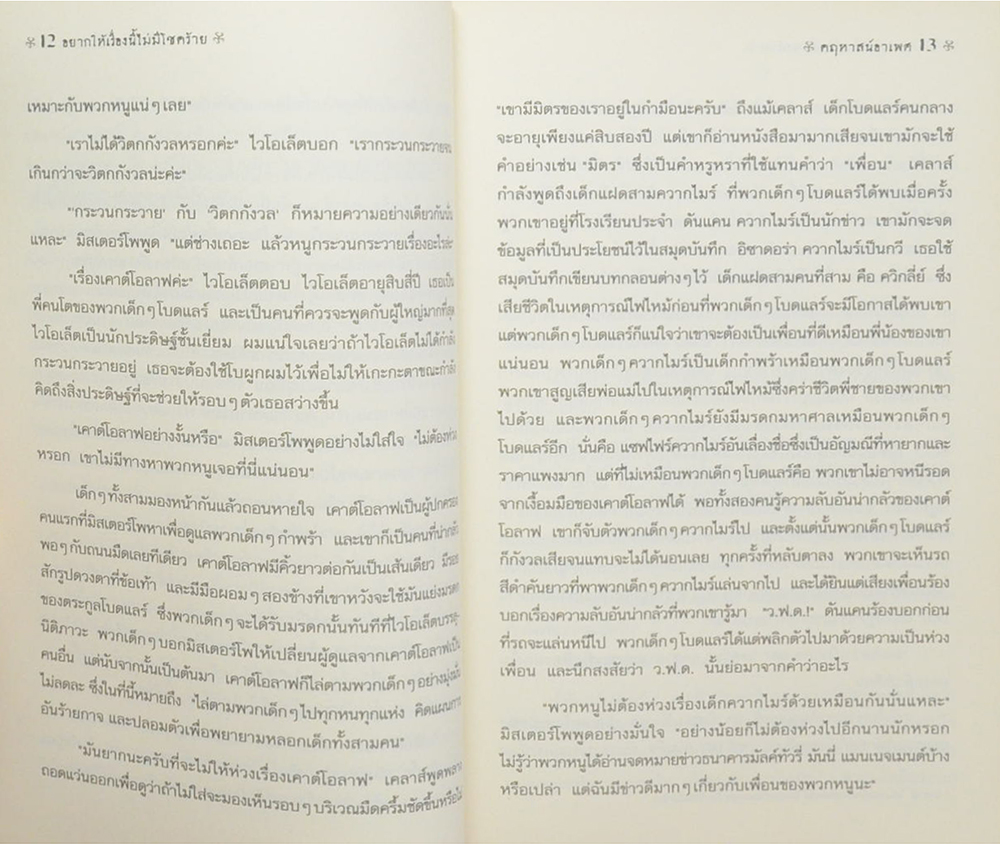 12 อยากให้เรื่องนี้ไม่มีโชคร้าย
เหมาะกับพวกหนูแน่ๆเลย"
"เราไม่ได้วิตกกังวลหรอกค่ะ" ไวโอเล็ตบอก "เรากระวนกระวายจน
เกินกว่าจะวิตกกังวลน่ะค่ะ"
"'กระวนกระวาย' กับ 'วิตกกังวล' ก็หมายความอย่างเดียวกันนั่น
แหละ" มิสเตอร์โพพูด "แต่ช่างเถอะ แล้วหนูกระวนกระวายเรื่องอะไรล่ะ"
"เรื่องเคาต์โอลาฟค่ะ" ไวโอเล็ตตอบ ไวโอเล็ตอายุสิบสี่ปี เธอเป็น
พี่คนโตของพวกเด็กๆโบดแลร์ และเป็นคนที่ควรจะพูดกับผู้ใหญ่มากที่สุด
ไวโอเล็ตเป็นนักประดิษฐ์ชั้นเยี่ยม ผมแน่ใจเลยว่าถ้าไวโอเล็ตไม่ได้กำลัง
กระวนกระวายอยู่ เธอจะต้องใช้โบผูกผมไว้เพื่อไม่ให้เกะกะตาขณะกำลัง
คิดถึงสิ่งประดิษฐ์ที่จะช่วยให้รอบๆตัวเธอสว่างขึ้น
"เคาต์โอลาฟอย่างงั้นหรือ" มิสเตอร์โพพูดอย่างไม่ใส่ใจ "ไม่ต้องห่วง
หรอก เขาไม่มีทางหาพวกหนูเจอที่นี่แน่นอน"
เด็กๆทั้งสามมองหน้ากันแล้วถอนหายใจ เคาต์โอลาฟเป็นผู้ปกครอง
คนแรกที่มิสเตอร์โพหาเพื่อดูแลพวกเด็กๆกำพร้า และเขาก็เป็นคนที่น่ากลัว
พอๆกับถนนมืดเลยทีเดียว เคาต์โอลาฟมีคิ้วยาวต่อกันเป็นเส้นเดียว มีรอย
สักรูปดวงตาที่ข้อเท้า และมีมือผอมๆสองข้างที่เขาหวังจะใช้มันแย่งมรดก
ของตระกูลโบดแลร์ ซึ่งพวกเด็กๆจะได้รับมรดกนั้นทันทีที่ไวโอเล็ตบรรลุ-
นิติภาวะ พวกเด็กๆบอกมิสเตอร์โพให้เปลี่ยนผู้ดูแลจากเคาต์โอลาฟเป็น
คนอื่น แต่นับจากนั้นเป็นต้นมา เคาต์โอลาฟก็ไล่ตามพวกเด็กๆอย่างมุ่งมั่น
ไม่ลดละ ซึ่งในที่นี้หมายถึง "ไล่ตามพวกเด็กๆไปทุกหนทุกแห่ง คิดแผนการ
อันร้ายกาจ และปลอมตัวเพื่อพยายามหลอกเด็กทั้งสามคน"
"มันยากนะครับที่จะไม่ให้ห่วงเรื่องเคาต์โอลาฟ" เคลาส์พูดพลาง
ถอดแว่นออกเพื่อดูว่าถ้าไม่ใส่จะมองเห็นรอบๆบริเวณมืดครึ้มชัดขึ้นหรือไม่
คฤหาสน์อาเพศ 13
"เขามีมิตรของเราอยู่ในกำมือนะครับ" ถึงแม้เคลาส์ เด็กโบดแลร์คนกลาง
จะอายุเพียงแค่สิบสองปี แต่เขาก็อ่านหนังสือมามากเสียจนเขามักจะใช้
คำอย่างเช่น "มิตร" ซึ่งเป็นคำหรูหราที่ใช้แทนคำว่า "เพื่อน" เคลาส์
กำลังพูดถึงเด็กแฝดสามควากไมร์ ที่พวกเด็กๆโบดแลร์ได้พบเมื่อครั้ง
พวกเขาอยู่ที่โรงเรียนประจำ ดันแคน ควากไมร์เป็นนักข่าว เขามักจะจด
ข้อมูลที่เป็นประโยชน์ไว้ในสมุดบันทึก อิซาดอร่า ควากไมร์เป็นกวี เธอใช้
สมุดบันทึกเขียนบทกลอนต่างๆไว้ เด็กแฝดสามคนที่สาม คือ ควิกลี่ย์ ซึ่ง
เสียชีวิตในเหตุการณ์ไฟไหม้ก่อนที่พวกเด็กๆโบดแลร์จะมีโอกาสได้พบเขา
แต่พวกเด็กๆโบดแลร์ก็แน่ใจว่าเขาจะต้องเป็นเพื่อนที่ดีเหมือนพี่น้องของเขา
แน่นอน พวกเด็กๆควากไมร์เป็นเด็กกำพร้าเหมือนพวกเด็กๆโบดแลร์
พวกเขาสูญเสียพ่อแม่ไปในเหตุการณ์ไฟไหม้ซึ่งคร่าชีวิตพี่ชายของพวกเขา
ไปด้วย และพวกเด็กๆควากไมร์ยังมีมรดกมหาศาลเหมือนพวกเด็กๆ
โบดแลร์อีก นั่นคือ แซฟไฟร์ควากไมร์อันเลื่องชื่อซึ่งเป็นอัญมณีที่หายากและ
ราคาแพงมาก แต่ที่ไม่เหมือนพวกเด็กๆโบดแลร์คือ พวกเขาไม่อาจหนีรอด
จากเงื้อมมือของเคาต์โอลาฟได้ พอทั้งสองคนรู้ความลับอันน่ากลัวของเคาต์
โอลาฟ เขาก็จับตัวพวกเด็กๆควากไมร์ไป และตั้งแต่นั้นพวกเด็กๆโบดแลร์
ก็กังวลเสียจนแทบจะไม่ได้นอนเลย ทุกครั้งที่หลับตาลง พวกเขาจะเห็นรถ
สีดำคันยาวที่พาพวกเด็กๆควากไมร์แล่นจากไป และได้ยินแต่เสียงเพื่อนร้อง
บอกเรื่องความลับอันน่ากลัวที่พวกเขารู้มา "ว.ฟ.ด.!" ดันแคนร้องบอกก่อน
ที่รถจะแล่นหนีไป พวกเด็กๆโบดแลร์ได้แต่พลิกตัวไปมาด้วยความเป็นห่วง
เพื่อน และนึกสงสัยว่า ว.ฟ.ด. นั้นย่อมาจากคำว่าอะไร
"พวกหนูไม่ต้องห่วงเรื่องเด็กควากไมร์ด้วยเหมือนกันนั่นแหละ"
มิสเตอร์โพพูดอย่างมั่นใจ "อย่างน้อยก็ไม่ต้องห่วงไปอีกนานนักหรอก
ไม่รู้ว่าพวกหนูได้อ่านจดหมายข่าวธนาคารมัลค์ทัวรี่ มันนี่ แมนเนจเมนต์บ้าง
หรือเปล่า แต่ฉันมีข่าวดีมากๆเกี่ยวกับเพื่อนของพวกหนูนะ"